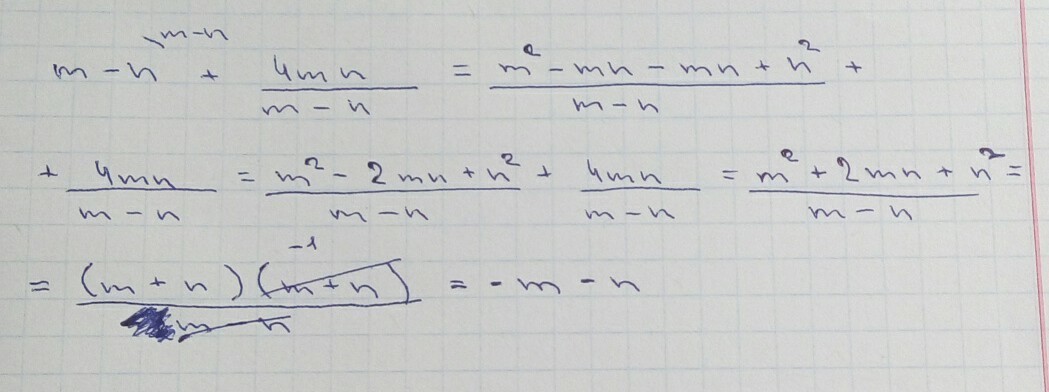 m - n \m-n + 4mn / (m - n) = (m² - mn - mn + n²) / (m - n) +
+ 4mn / (m - n) = (m² - 2mn + n²) / (m - n) + 4mn / (m - n) = (m² + 2mn + n²) / (m - n) =
= (m + n)(m + n) -1 / (m - n) = -m - n